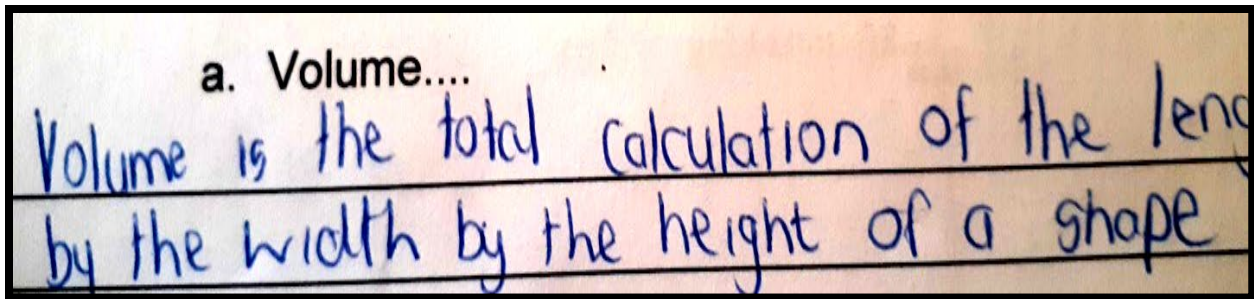 a. Volume....
Volume is the total calculation of the leng
by the width by the height of a shape